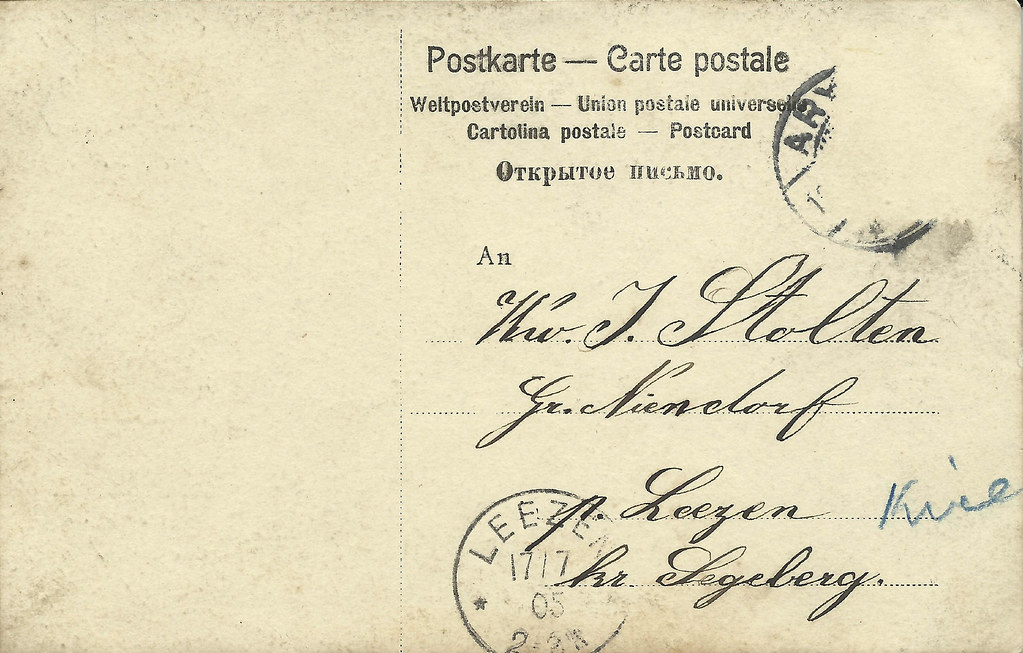 Postkarte — Carte postale
Weltpostverein — Union postale universelle
Cartolina postale — Postcard
Открытое письмо.
AR
An
J. Stolten
Gr. Niendorf
p. Leezen
Kr. Segeberg.
LEEZEN
17/7
05